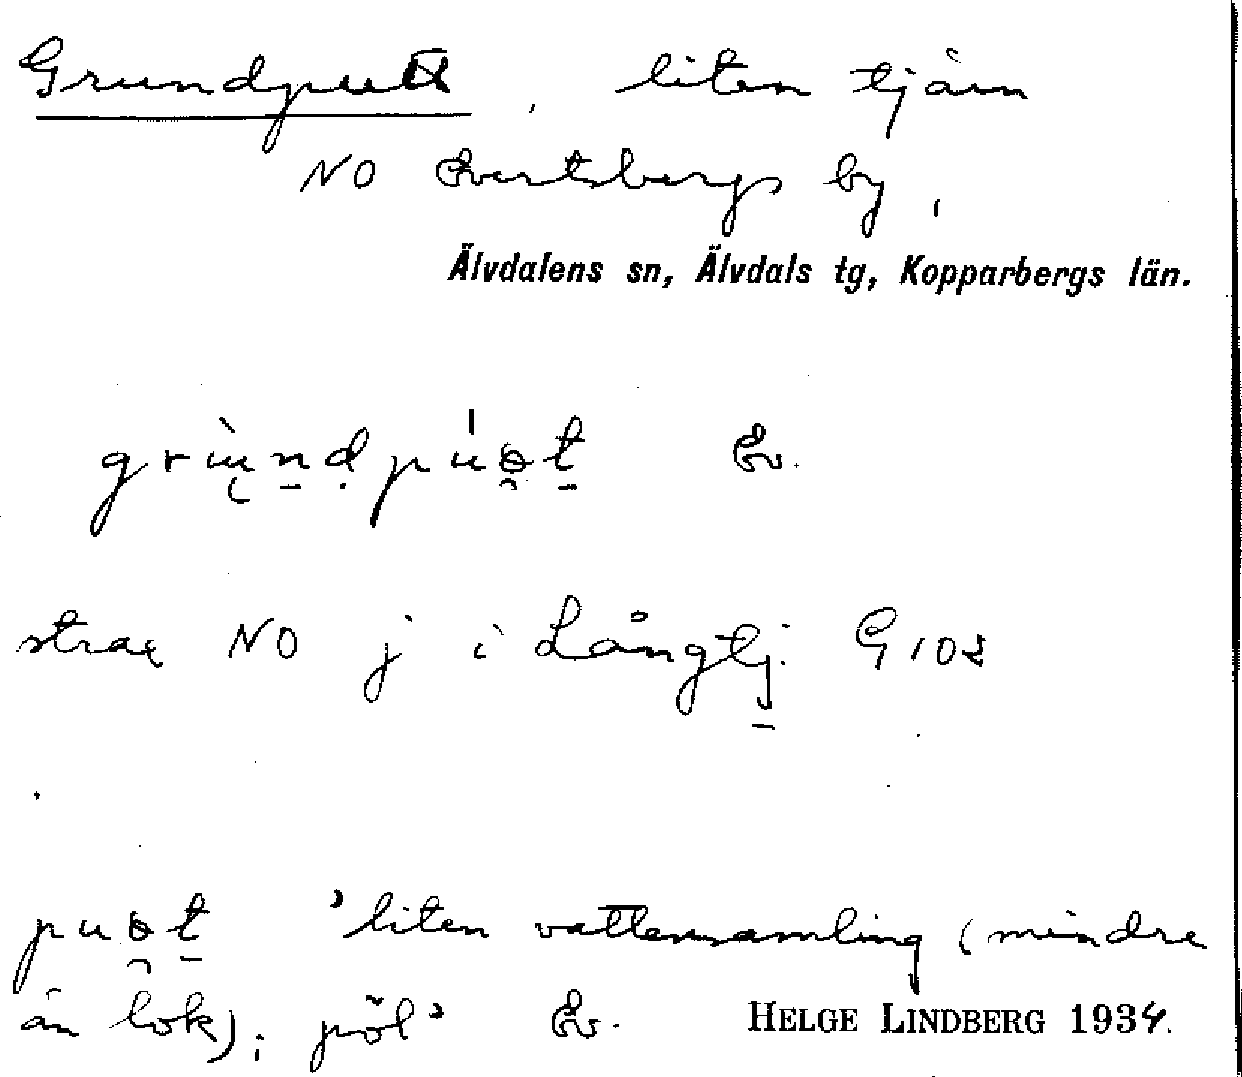 Grundputt, liten tjärn
NO Evertsbergs by,
Älvdalens sn, Älvdals tg, Kopparbergs län.
Ev.
strax NO j i Långtj. G 102
'liten vattensamling (mindre
än lok); pöl' Ev. HELGE LINDBERG 1934.